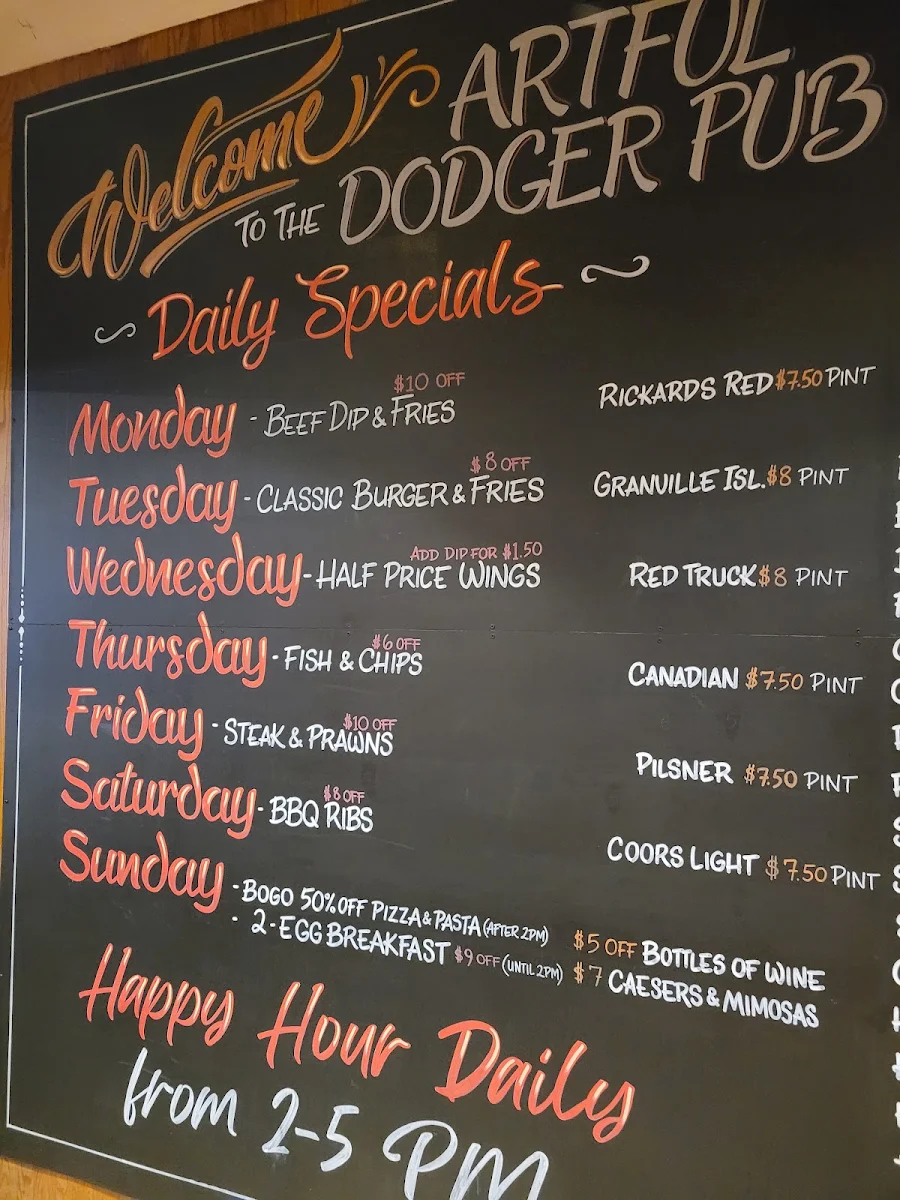 Welcome ARTFUL
TO THE DODGER PUB
Daily Specials
$10 OFF
Monday - BEEF DIP & FRIES RICKARDS RED $7.50 PINT
$8 OFF
Tuesday - CLASSIC BURGER & FRIES GRANVILLE ISL. $8 PINT
ADD DIP FOR $1.50
Wednesday - HALF PRICE WINGS RED TRUCK $8 PINT
$6 OFF
Thursday - FISH & CHIPS CANADIAN $7.50 PINT
$10 OFF
Friday - STEAK & PRAWNS PILSNER $7.50 PINT
$8 OFF
Saturday - BBQ RIBS COORS LIGHT $7.50 PINT
Sunday - BOGO 50% OFF PIZZA & PASTA (AFTER 2PM) $5 OFF BOTTLES OF WINE
- 2-EGG BREAKFAST $9 OFF (UNTIL 2PM) $7 CAESERS & MIMOSAS
Happy Hour Daily
from 2-5 PM